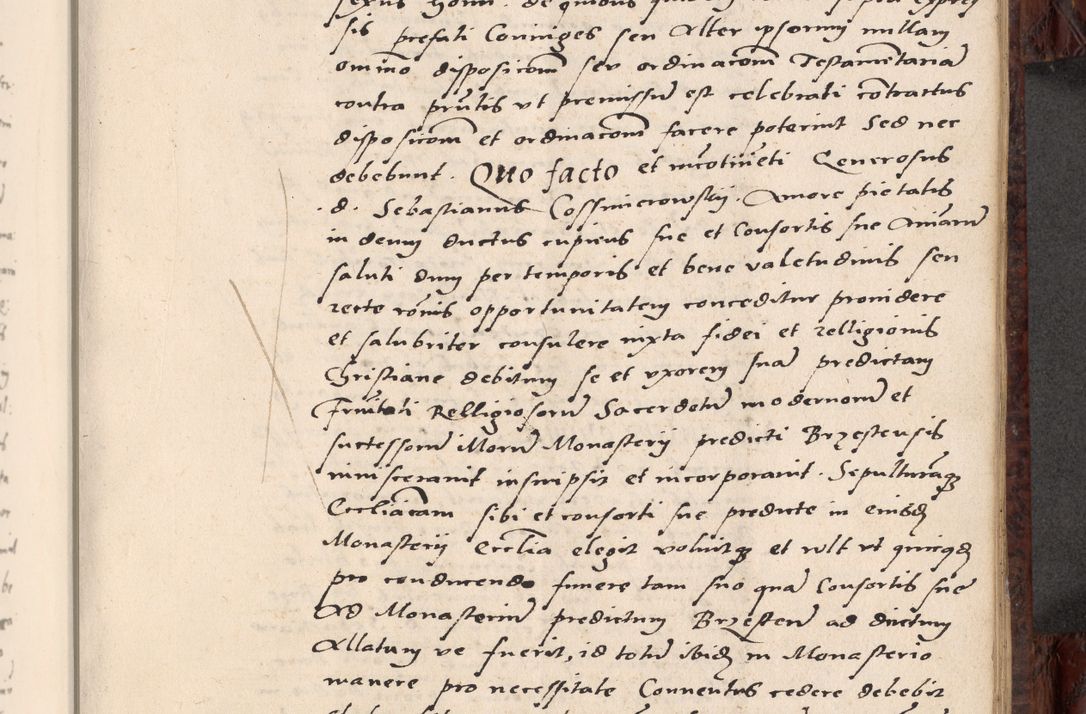 sis prefati Coniuges seu Alter ipsorum nullam
omnino disposicom seu ordinacom Testamentaria
contra prntis vt premissum est celebrati cōtractus
disposicom et ordinacom facere poterint Sed nec
debebunt. Quo facto et incotinēti Generosus
d. Sebastianus Cossmierowskij. Amore pietatis
in deum ductus cupiens sue et Consortis sue Aniarum
saluti dum per temporis et bene valetudinis seu
recte rōnis opportunitatem conceditur prouidere
et salubriter consulere iuxta fidei et relligionis
Christiane debitum se et vxorem suā predictam
Frnitati Relligiosorum Sacerdotum modernorum et
successorum illorum Monasterij predicti Brzestensis
inuiscerauit inscripsit et incorporauit. Sepulturāq3
Eccliacam sibi et consorti sue predicte in eiusd
Monasterij Ecclia elegit voluitq3 et vult vt quicqd
pro conducendo funere tam suo quā Consortis sue
Ad Monasterium predictum Brzesten ad ductum
Allatum ve fuerit, id totum ibid in Monasterio
manere pro necessitate Conuentus cedere debebit